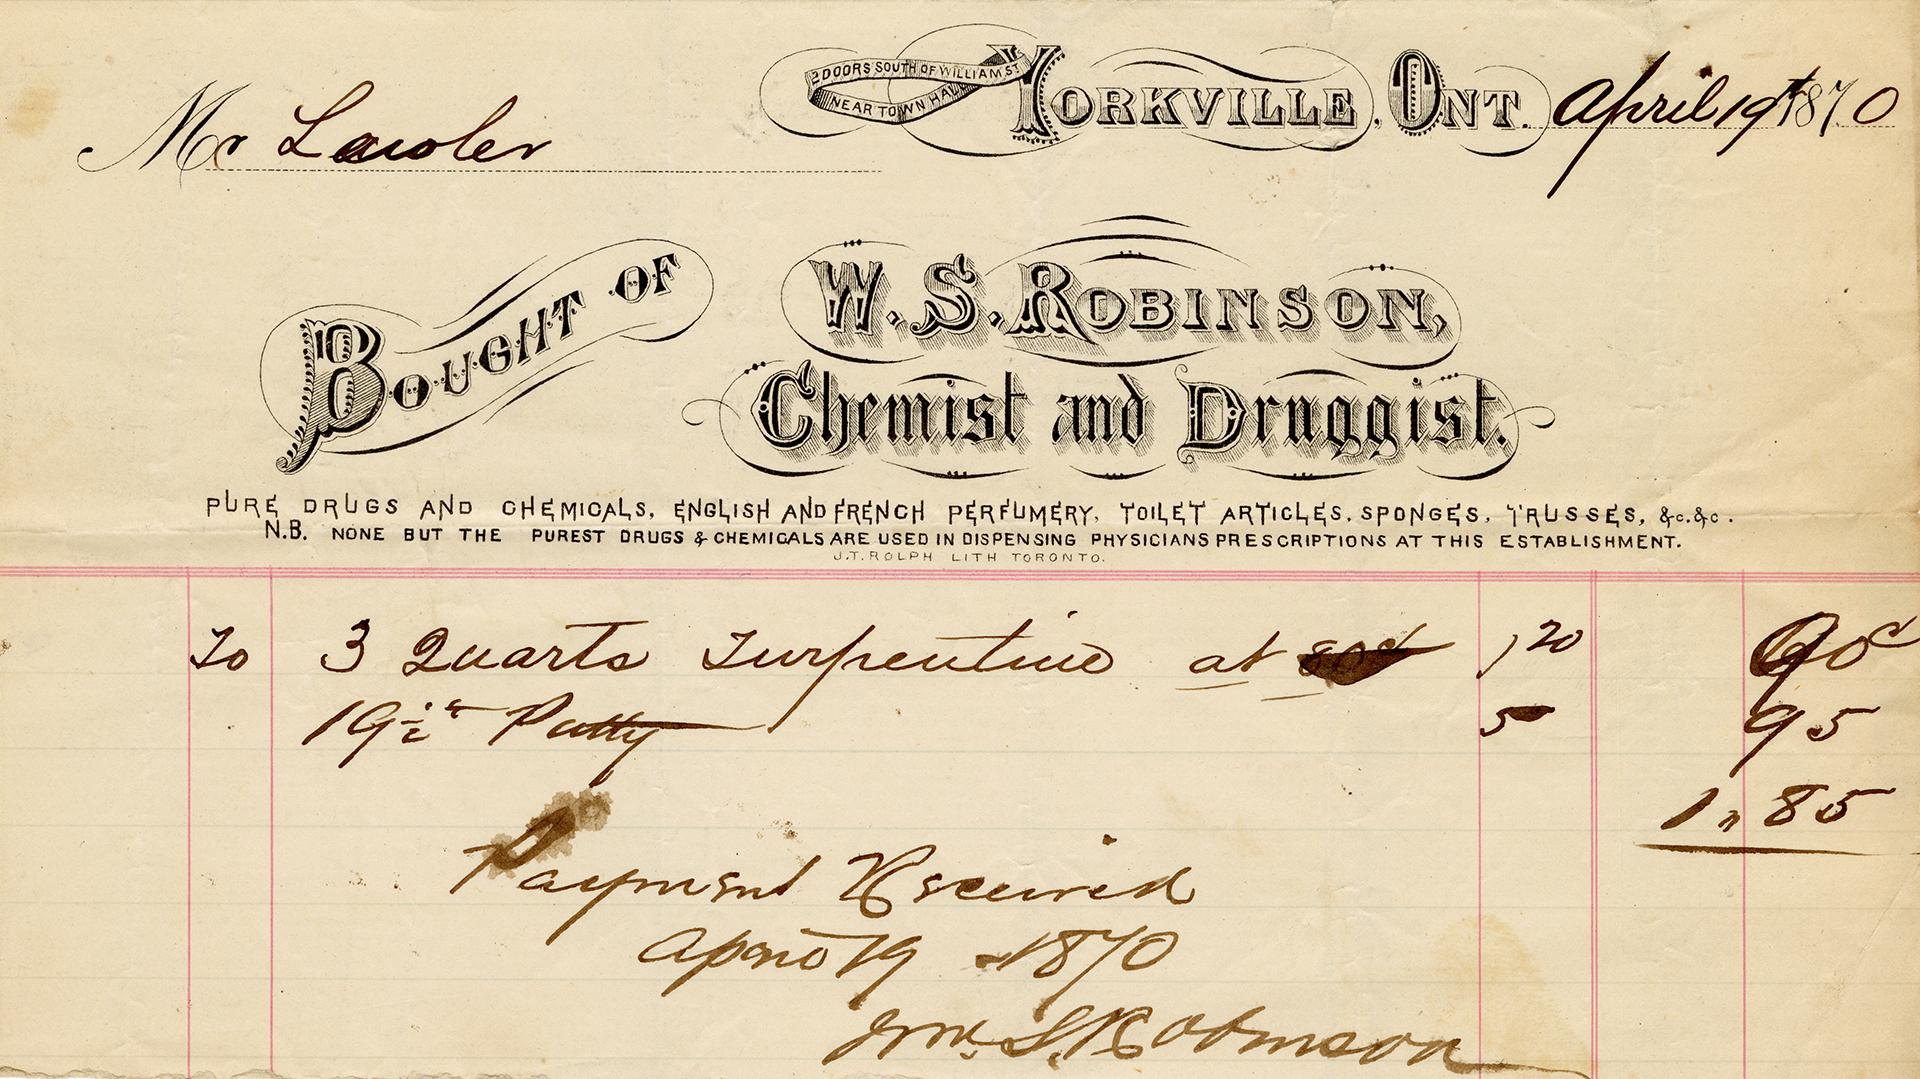 2 DOORS SOUTH OF WILLIAM ST.
NEAR TOWN HALL
YORKVILLE, ONT. April 19th 1870
Mr Lawler
BOUGHT OF W. S. ROBINSON,
Chemist and Druggist.
PURE DRUGS AND CHEMICALS, ENGLISH AND FRENCH PERFUMERY, TOILET ARTICLES, SPONGES, TRUSSES, &c.&c.
N.B. NONE BUT THE PUREST DRUGS & CHEMICALS ARE USED IN DISPENSING PHYSICIANS PRESCRIPTIONS AT THIS ESTABLISHMENT.
J.T. ROLPH LITH TORONTO.
To 3 Quarts Turpentine at 1 20 90c
19½ Putty 5 95
1,, 85
Payment Received
April 19 1870
Wm. S. Robinson